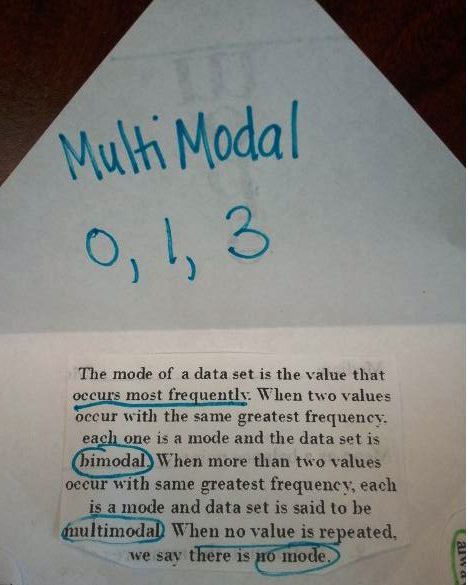 Multi Modal
0, 1, 3
The mode of a data set is the value that
occurs most frequently. When two values
occur with the same greatest frequency,
each one is a mode and the data set is
bimodal. When more than two values
occur with same greatest frequency, each
is a mode and data set is said to be
multimodal. When no value is repeated,
we say there is no mode.